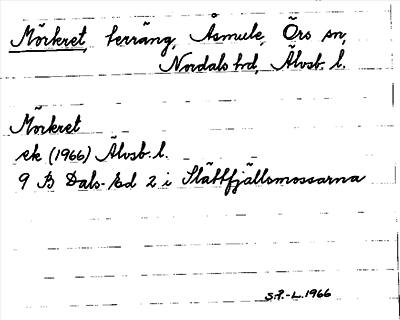 Mörkret, terräng, Åsmule, Örs sn,
Nordals hd, Älvsb. l.
Mörkret
ek (1966) Älvsb. l.
9 B Dals-Ed 2 i Slättfjällsmossarna
S.P.-L. 1966